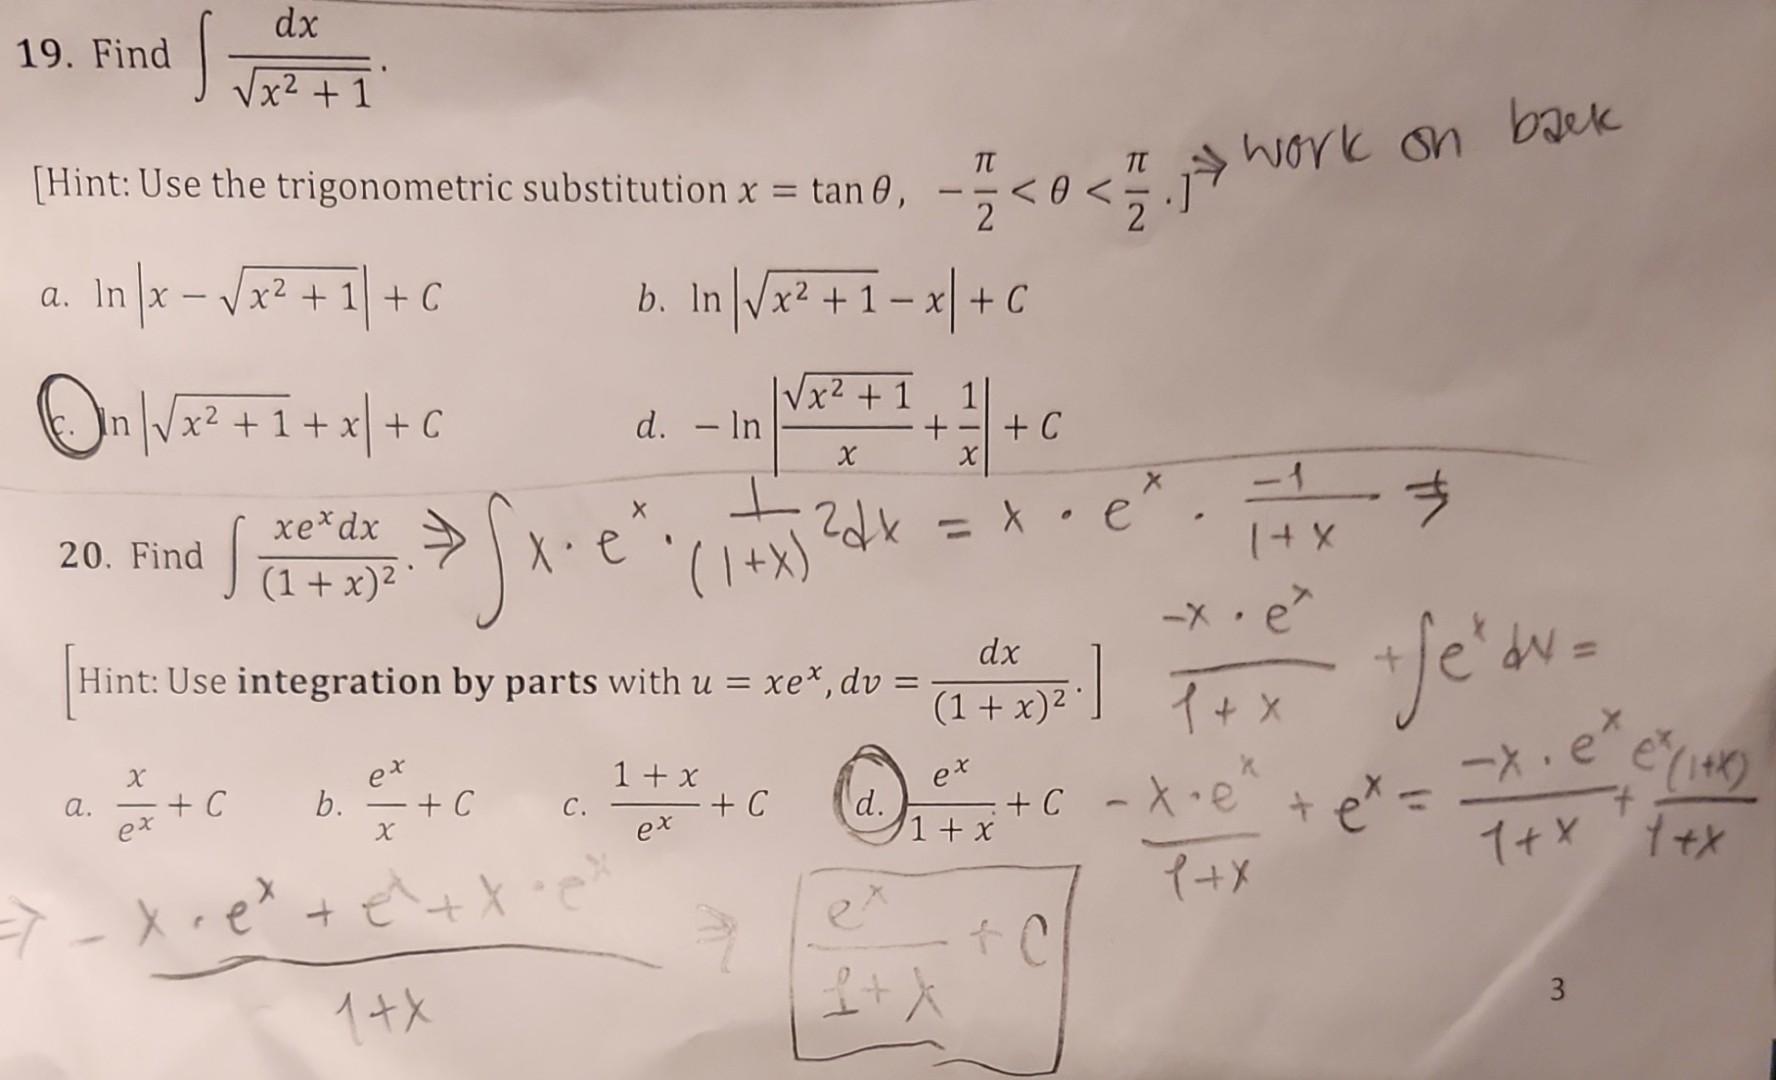 19. Find ∫ dx / √(x² + 1).
[Hint: Use the trigonometric substitution x = tan θ, −π/2 < θ < π/2 .] ⇒ work on back
a. ln |x − √(x² + 1)| + C b. ln |√(x² + 1) − x| + C
c. ln |√(x² + 1) + x| + C d. − ln |√(x² + 1)/x + 1/x| + C
20. Find ∫ xeˣdx / (1 + x)². ⇒ ∫ x · eˣ · 1/(1+x)² dx = x · eˣ · −1/(1+x) ⇒
−x · eˣ / (1+x) + ∫ eˣ dv =
[Hint: Use integration by parts with u = xeˣ, dv = dx / (1 + x)².]
a. x/eˣ + C b. eˣ/x + C c. (1 + x)/eˣ + C d. eˣ/(1 + x) + C
−x·eˣ/(1+x) + eˣ = −x·eˣ/(1+x) + eˣ(1+x)/(1+x)
⇒ (−x·eˣ + eˣ + x·eˣ)/(1+x) ⇒ eˣ/(1+x) + C
3